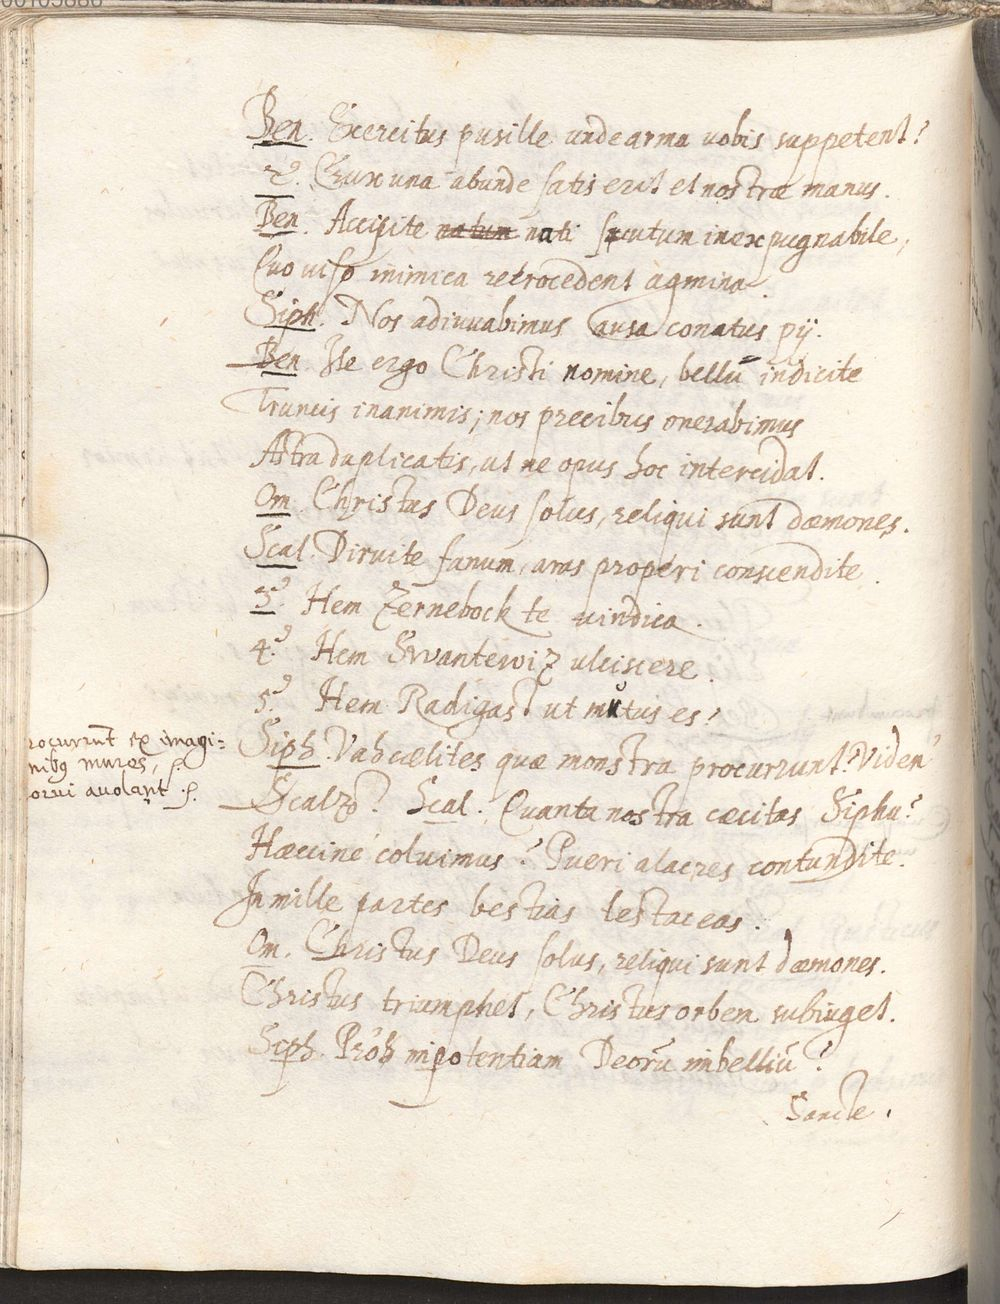 00105886
Ben. Exercitus pusille unde arma vobis suppetent?
2.⁹ Crux una abunde satis erit et nostræ manus.
Ben. Accipite natum nati scutum inexpugnabile,
Quo viso inimica retrocedent agmina.
Siph. Nos adiuvabimus ausa conatus pij.
Ben. Ite ergo Christi nomine, bellū indicite
Truncis inanimis; nos precibus onerabimus
Astra duplicatis, ut ne opus hoc intercidat.
Om. Christus Deus solus, reliqui sunt dæmones.
Scal. Diruite fanum, aras properi conscendite.
3.⁹ Hem Zernebock te vindica.
4.⁹ Hem Swantewiz ulciscere.
5.⁹ Hem Radigast ut mutus es!
rocurrūt ex imagi=
nibꝫ mures,
orvi avolant.
Siph. Vah cælites quæ monstra procurrunt? Viden'
Scalzo? Scal. Quanta nostra cæcitas Sipha?
Hæccine coluimus? Pueri alacres contundite.
In mille partes bestias testaceas.
Om. Christus Deus solus, reliqui sunt dæmones.
Christus triumphet, Christus orbem subiuget.
Siph. Próh impotentiam Deorū imbelliū!
Sancte.